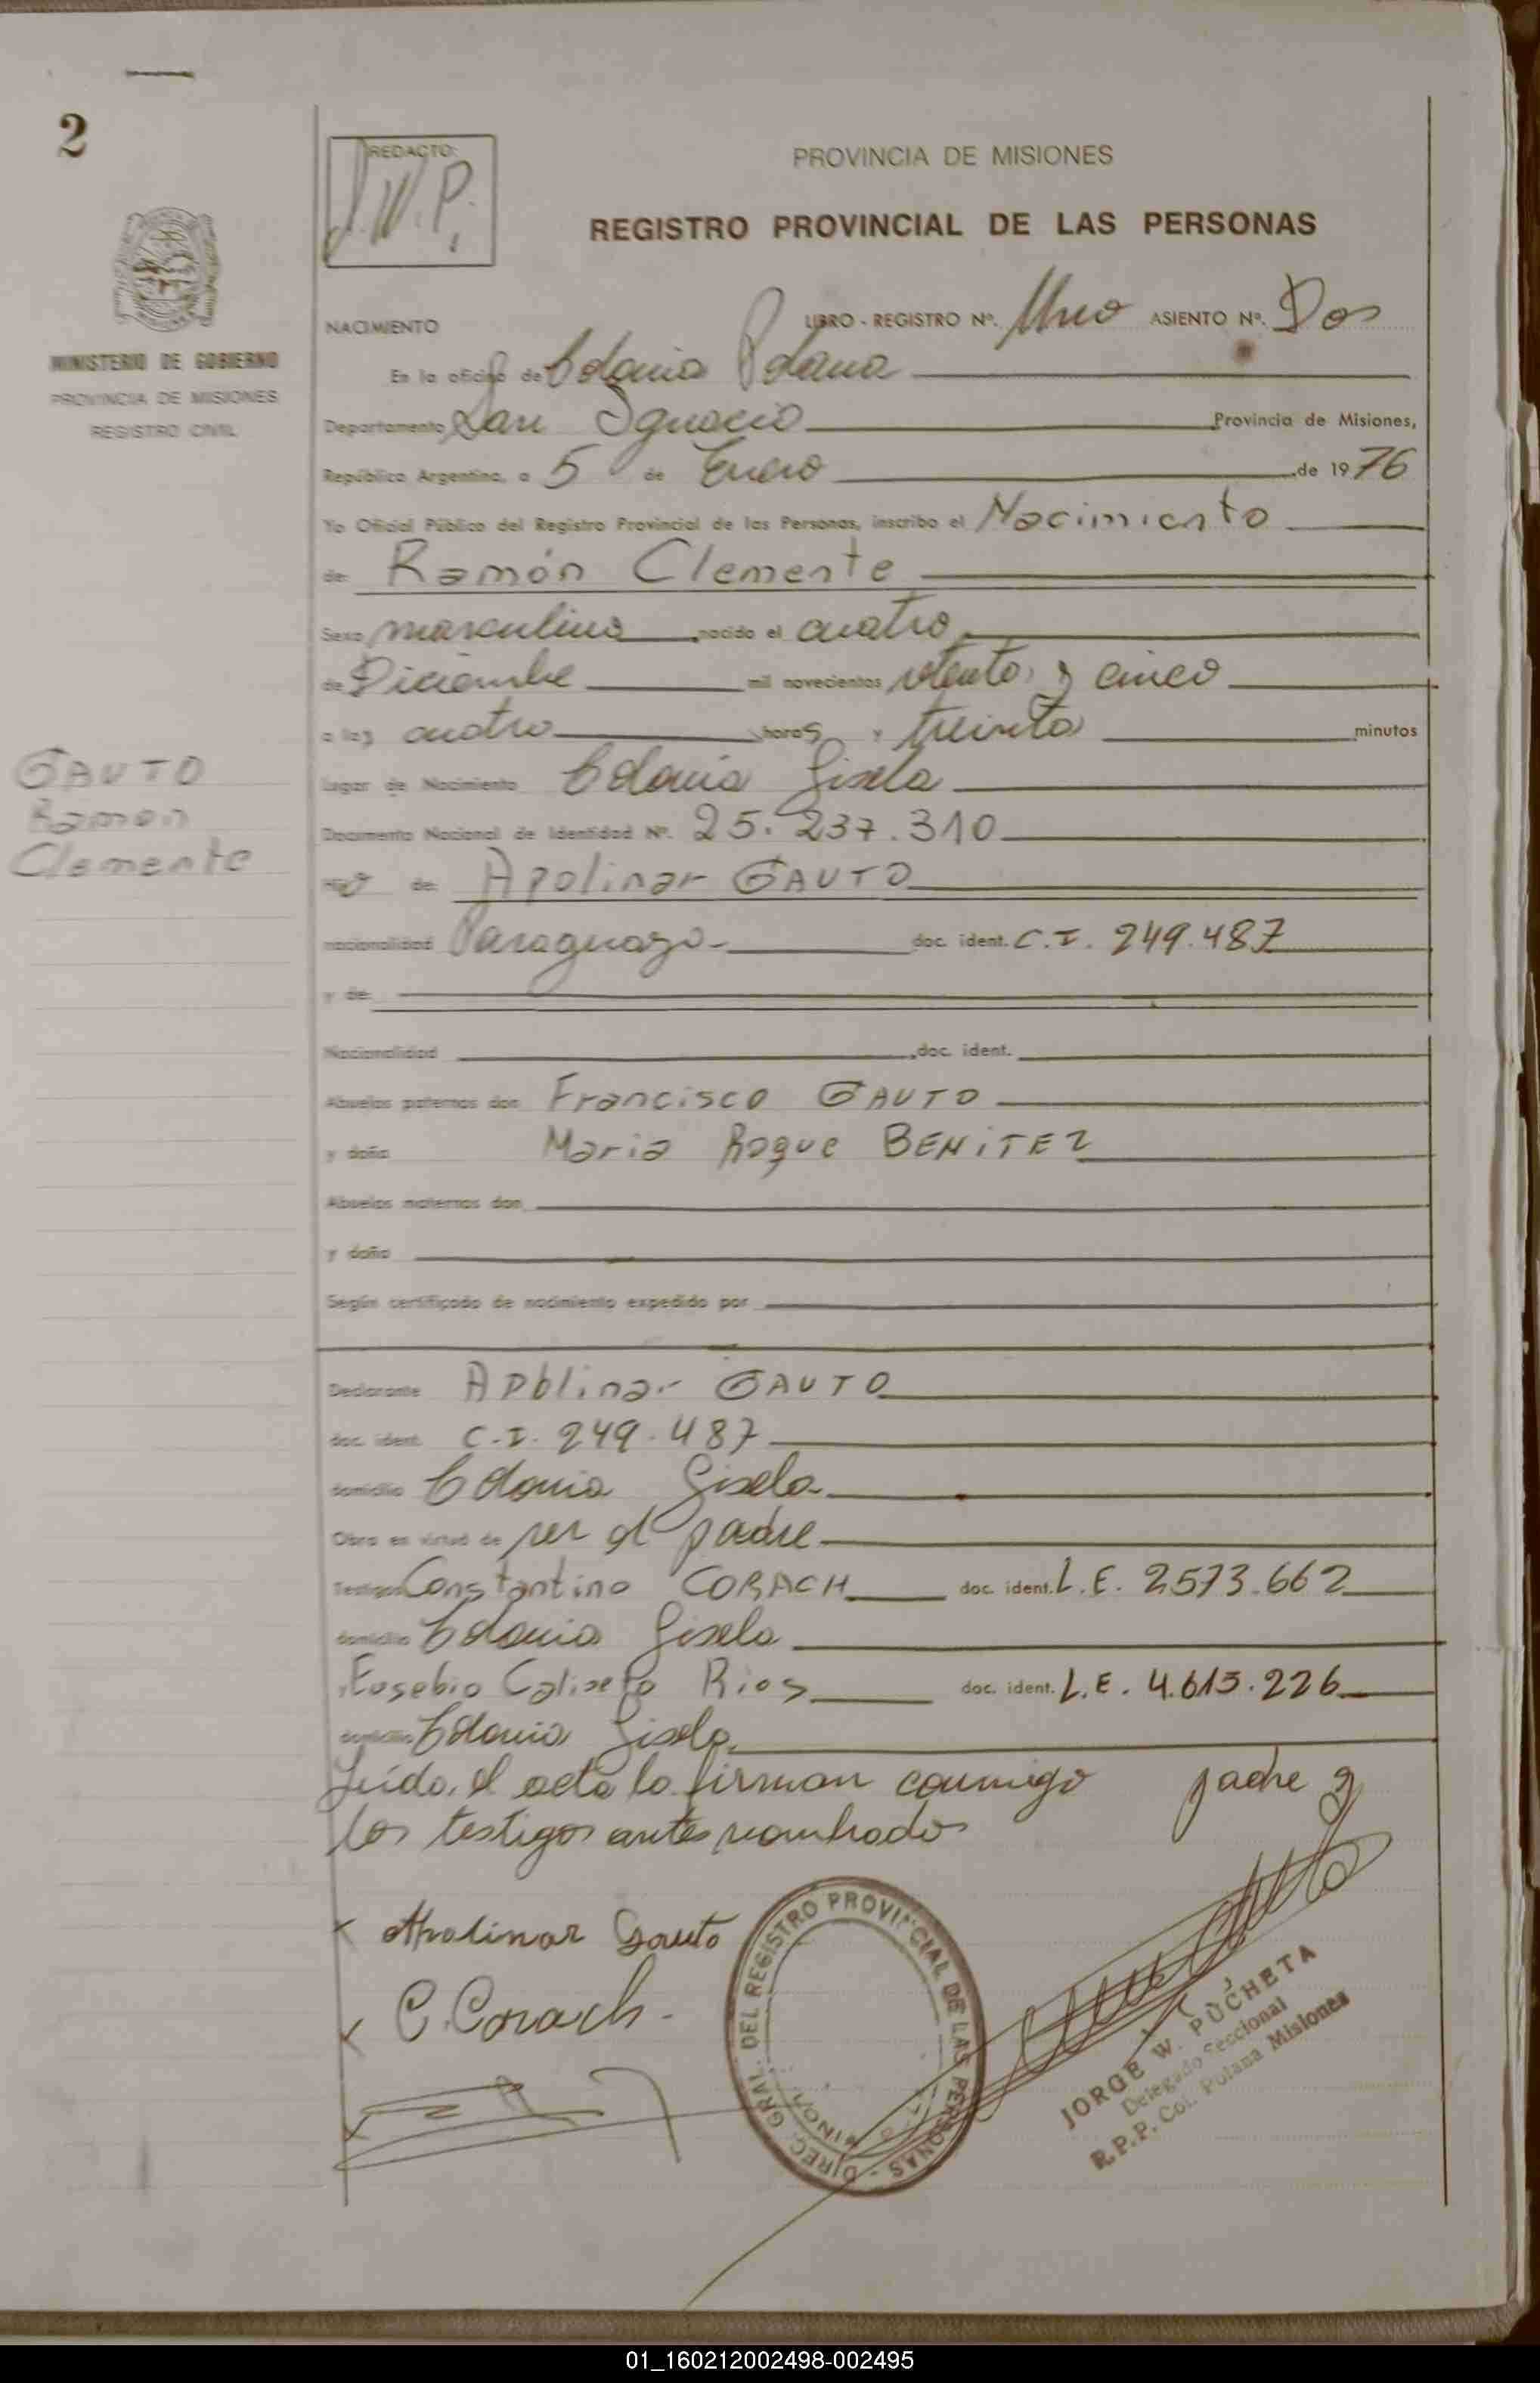 2
REDACTO:
J.W.P.
PROVINCIA DE MISIONES
REGISTRO PROVINCIAL DE LAS PERSONAS
MINISTERIO DE GOBIERNO
PROVINCIA DE MISIONES
REGISTRO CIVIL
NACIMIENTO
LIBRO - REGISTRO Nº. Uno ASIENTO Nº. Dos
En la oficina de Colonia Polana
Departamento San Ignacio Provincia de Misiones,
República Argentina, a 5 de Enero de 1976
Yo Oficial Público del Registro Provincial de las Personas, inscribo el Nacimiento
de: Ramón Clemente
Sexo masculino nacido el cuatro
de Diciembre mil novecientos setenta y cinco
a las cuatro horas y treinta minutos
Lugar de Nacimiento Colonia Gisela
Documento Nacional de Identidad Nº. 25.237.310
GAUTO
Ramon
Clemente
Hijo de: Apolinar GAUTO
nacionalidad Paraguaya doc. ident. C.I. 249.487
y de:
Nacionalidad doc. ident.
Abuelos paternos don Francisco GAUTO
y doña Maria Roque BENiTEZ
Abuelos maternos don
y doña
Según certificado de nacimiento expedido por
Declarante Apolinar GAUTO
doc. ident. C.I. 249.487
domicilio Colonia Gisela
Obra en virtud de ser el padre
Testigos Constantino CORACH doc. ident. L.E. 2573.662
domicilio Colonia Gisela
y Eusebio Calixto Rios doc. ident. L.E. 4.613.226
domicilio Colonia Gisela
Leída el acta la firman conmigo padre y
los testigos antes nombrados
x Apolinar Gauto
x C. Corach
x
DIREC. GRAL. DEL REGISTRO PROVINCIAL DE LAS PERSONAS
JORGE W. PUCHETA
Delegado Seccional
R.P.P. Col. Polana Misiones
01_160212002498-002495